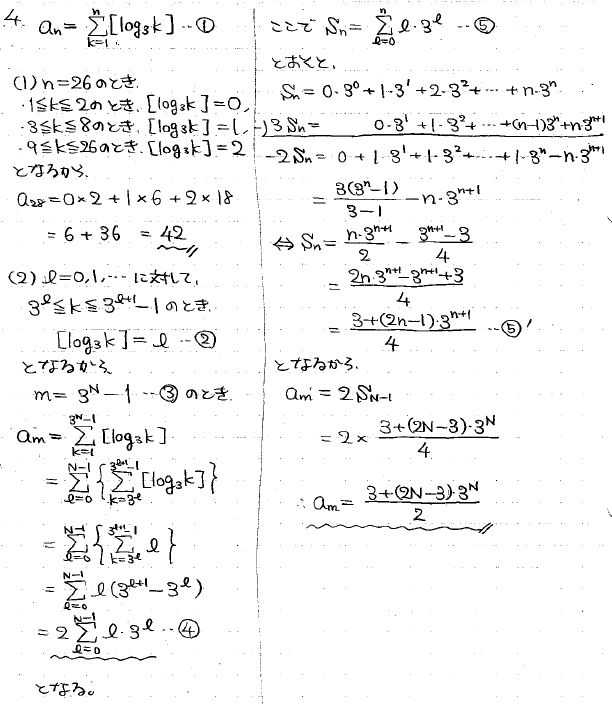 4. aₙ = Σ_{k=1}^{n} [log₃k] …①
(1) n=26のとき.
・1≦k≦2のとき, [log₃k]=0,
・3≦k≦8のとき, [log₃k]=1,
・9≦k≦26のとき, [log₃k]=2
となるから,
a₂₈=0×2+1×6+2×18
=6+36 =42
(2) l=0,1,… に対して,
3^l≦k≦3^{l+1}-1 のとき,
[log₃k]=l …②
となるから,
m=3^N-1 …③ のとき.
aₘ= Σ_{k=1}^{3^N-1} [log₃k]
= Σ_{l=0}^{N-1} { Σ_{k=3^l}^{3^{l+1}-1} [log₃k] }
= Σ_{l=0}^{N-1} { Σ_{k=3^l}^{3^{l+1}-1} l }
= Σ_{l=0}^{N-1} l(3^{l+1}-3^l)
= 2 Σ_{l=0}^{N-1} l・3^l …④
となる。
ここで Sₙ= Σ_{l=0}^{n} l・3^l …⑤
とおくと,
Sₙ=0・3⁰+1・3¹+2・3²+…+n・3ⁿ
-) 3Sₙ= 0・3¹+1・3²+…+(n-1)3ⁿ+n3^{n+1}
-2Sₙ=0+1・3¹+1・3²+…+1・3ⁿ-n・3^{n+1}
= 3(3ⁿ-1)/(3-1) - n・3^{n+1}
⇔ Sₙ= n・3^{n+1}/2 - (3^{n+1}-3)/4
= (2n・3^{n+1}-3^{n+1}+3)/4
= (3+(2n-1)・3^{n+1})/4 …⑤'
となるから,
aₘ=2S_{N-1}
=2× (3+(2N-3)・3^N)/4
∴ aₘ= (3+(2N-3)・3^N)/2